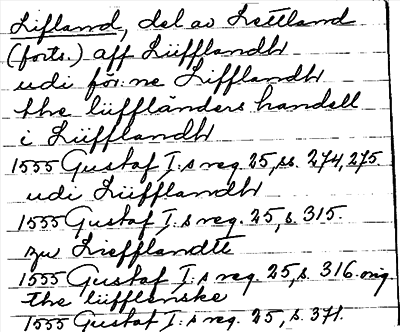 Lifland, del av Lettland
(forts.) aff Lüfflandh
udi för:ne Lifflandh
the lüffländers handell
i Lüfflandh
1555 Gustaf I:s reg. 25, ss. 274, 275.
udi Lüfflandh
1555 Gustaf I:s reg. 25, s. 315.
zu Liefflandtt
1555 Gustaf I:s reg. 25, s. 316. orig.
the lüfflenske
1555 Gustaf I:s reg. 25, s. 371.